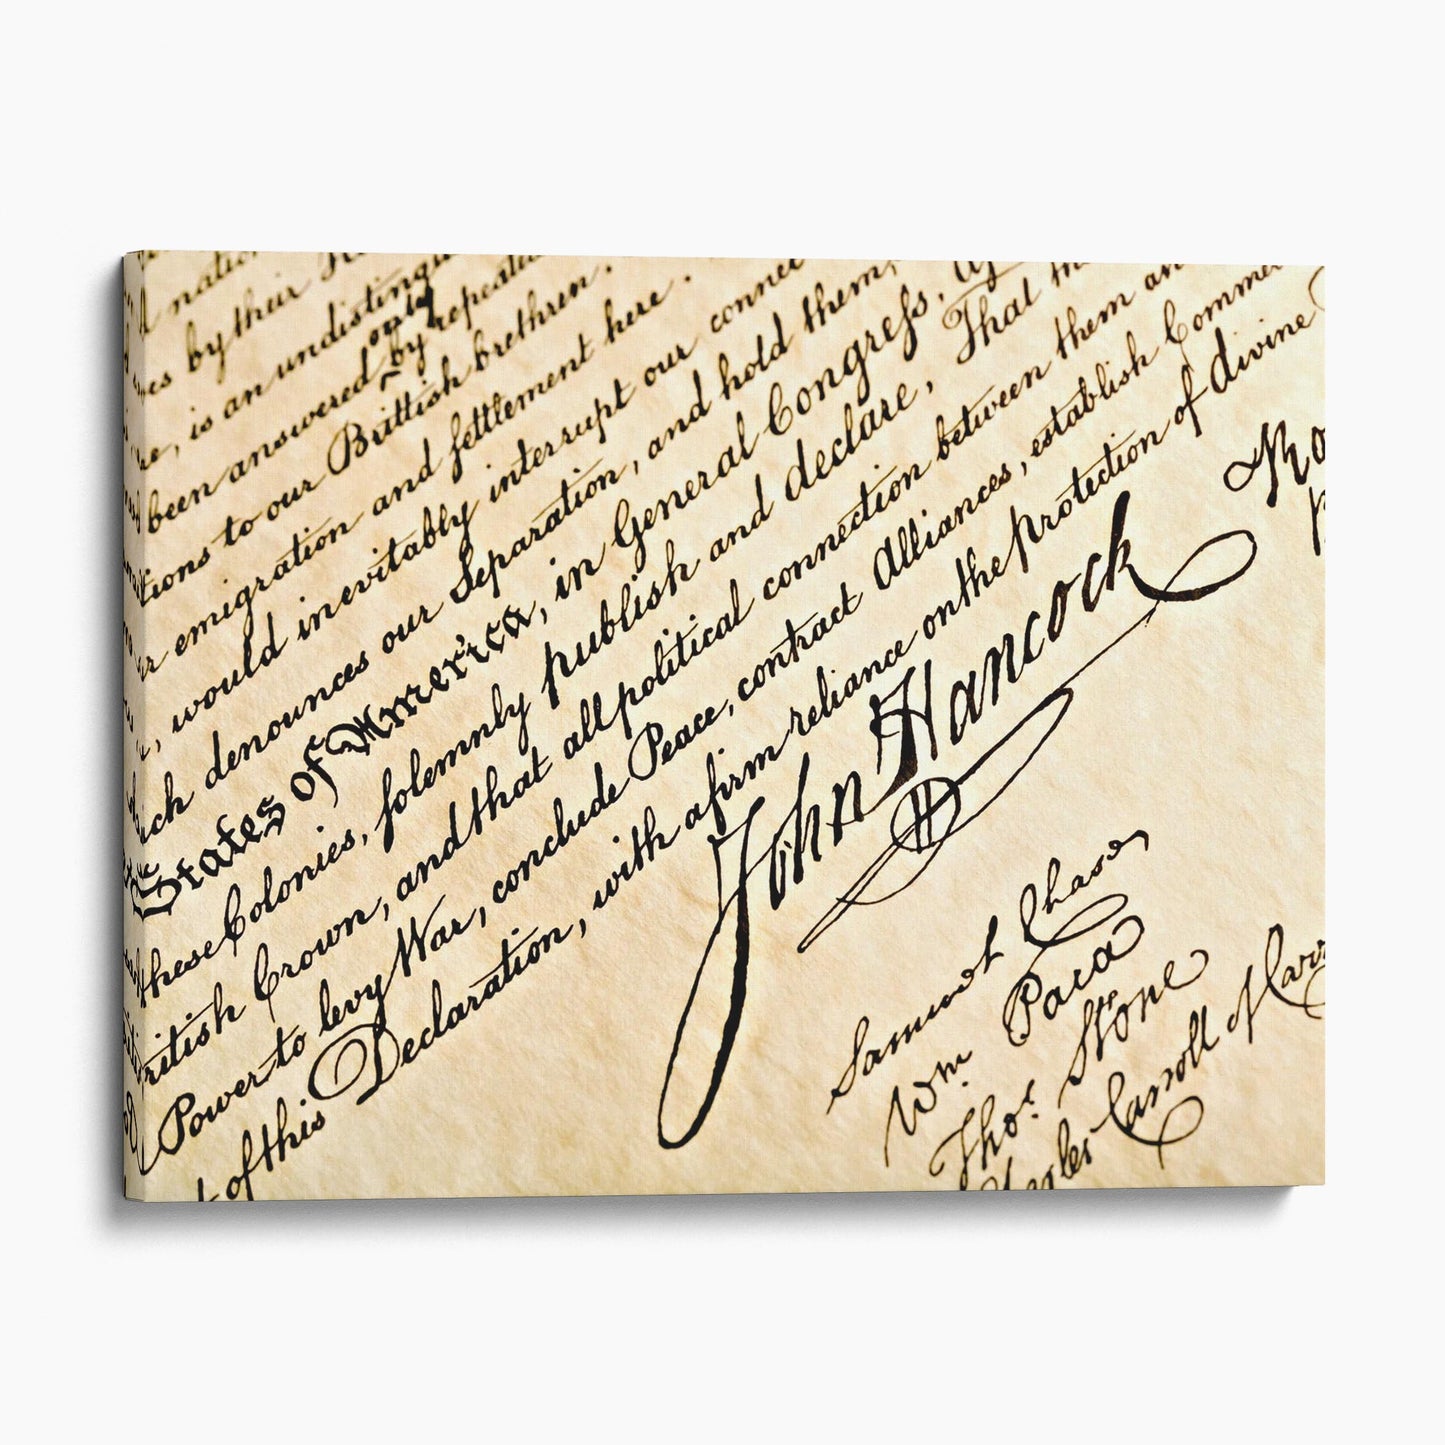 natio
by their
is an undistingu
only
been answered by repeate
tions to our Brittish brethren.
emigration and settlement here.
, would inevitably interrupt our connec
denounces our Separation, and hold them,
States of America, in General Congress,
these Colonies, solemnly publish and declare, That
British Crown, and that all political connection between them an
Power to levy War, conclude Peace, contract Alliances, establish Comme
of this Declaration, with a firm reliance on the protection of divine
John Hancock
Samuel Chase,
Wm. Paca
Thos. Stone
Charles Carroll of Carr